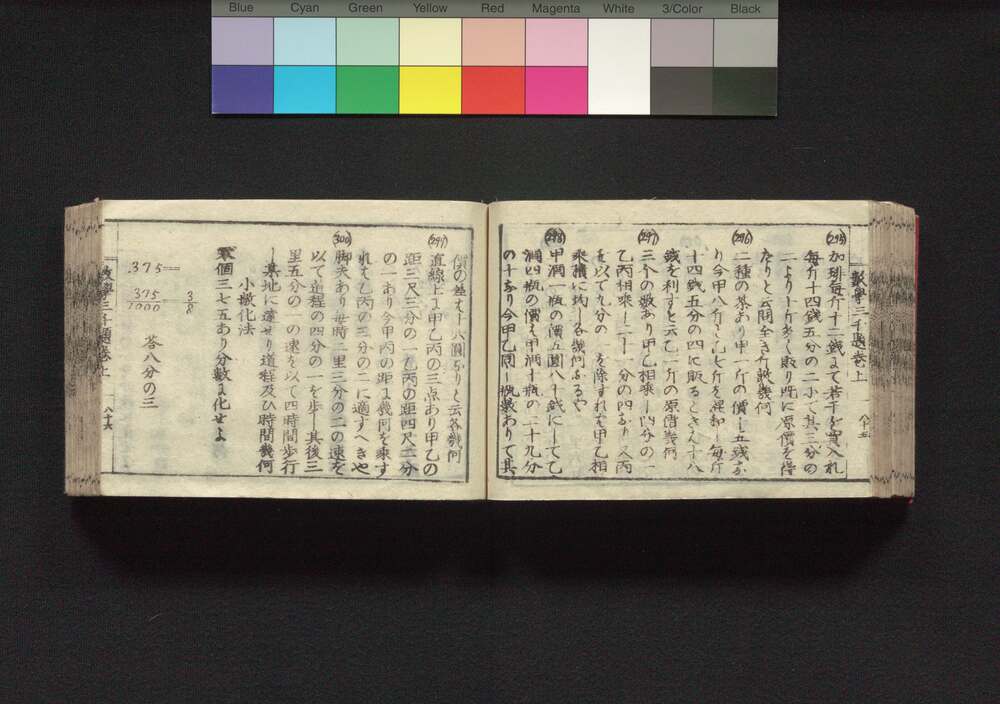 Blue Cyan Green Yellow Red Magenta White 3/Color Black
數學三千題卷上 八十五
(295) 加琲每斤十二錢まて若干を買入れ
每斤十四錢五分の二小て其三分の
二より十斤多く賣り既に原價を得
たりと云問全き斤數幾何
(296) 二種の茶あり甲一斤の價十五錢な
り今甲八斤と乙七斤を混和し每斤
十四錢五分の四に販るときハ十八
錢を利すと云乙一斤の原價幾何
(297) 三个の數あり甲乙相乘し四分の一
乙丙相乘し二十一分の四なり人丙
を以て九分の一を除すれを甲乙相
乘積に均し各幾何なるや
(298) 甲酒一瓶の價五圓八十錢にして乙
酒四瓶の價ハ甲酒十瓶の二十九分
の十なり今甲乙同し瓶數ありて其
價の差ハ十八圓なりと云各幾何
(299) 直線上に甲乙丙の三点あり甲乙の
距三尺三分の一乙丙の距四尺二分
の一あり今甲丙の距に幾何を乘す
れハ乙丙の三分の二に適すへきや
(300) 脚夫あり每時二里三分の二の速を
以て道程の四分の一を步し其後三
里五分の一の速を以て四時間步行
し某地に達せり道程及ひ時間幾何
小數化法
零個三七五あり分數に化せよ
.375=
375/1000=3/8
答八分の三
數學三千題卷上 八十六